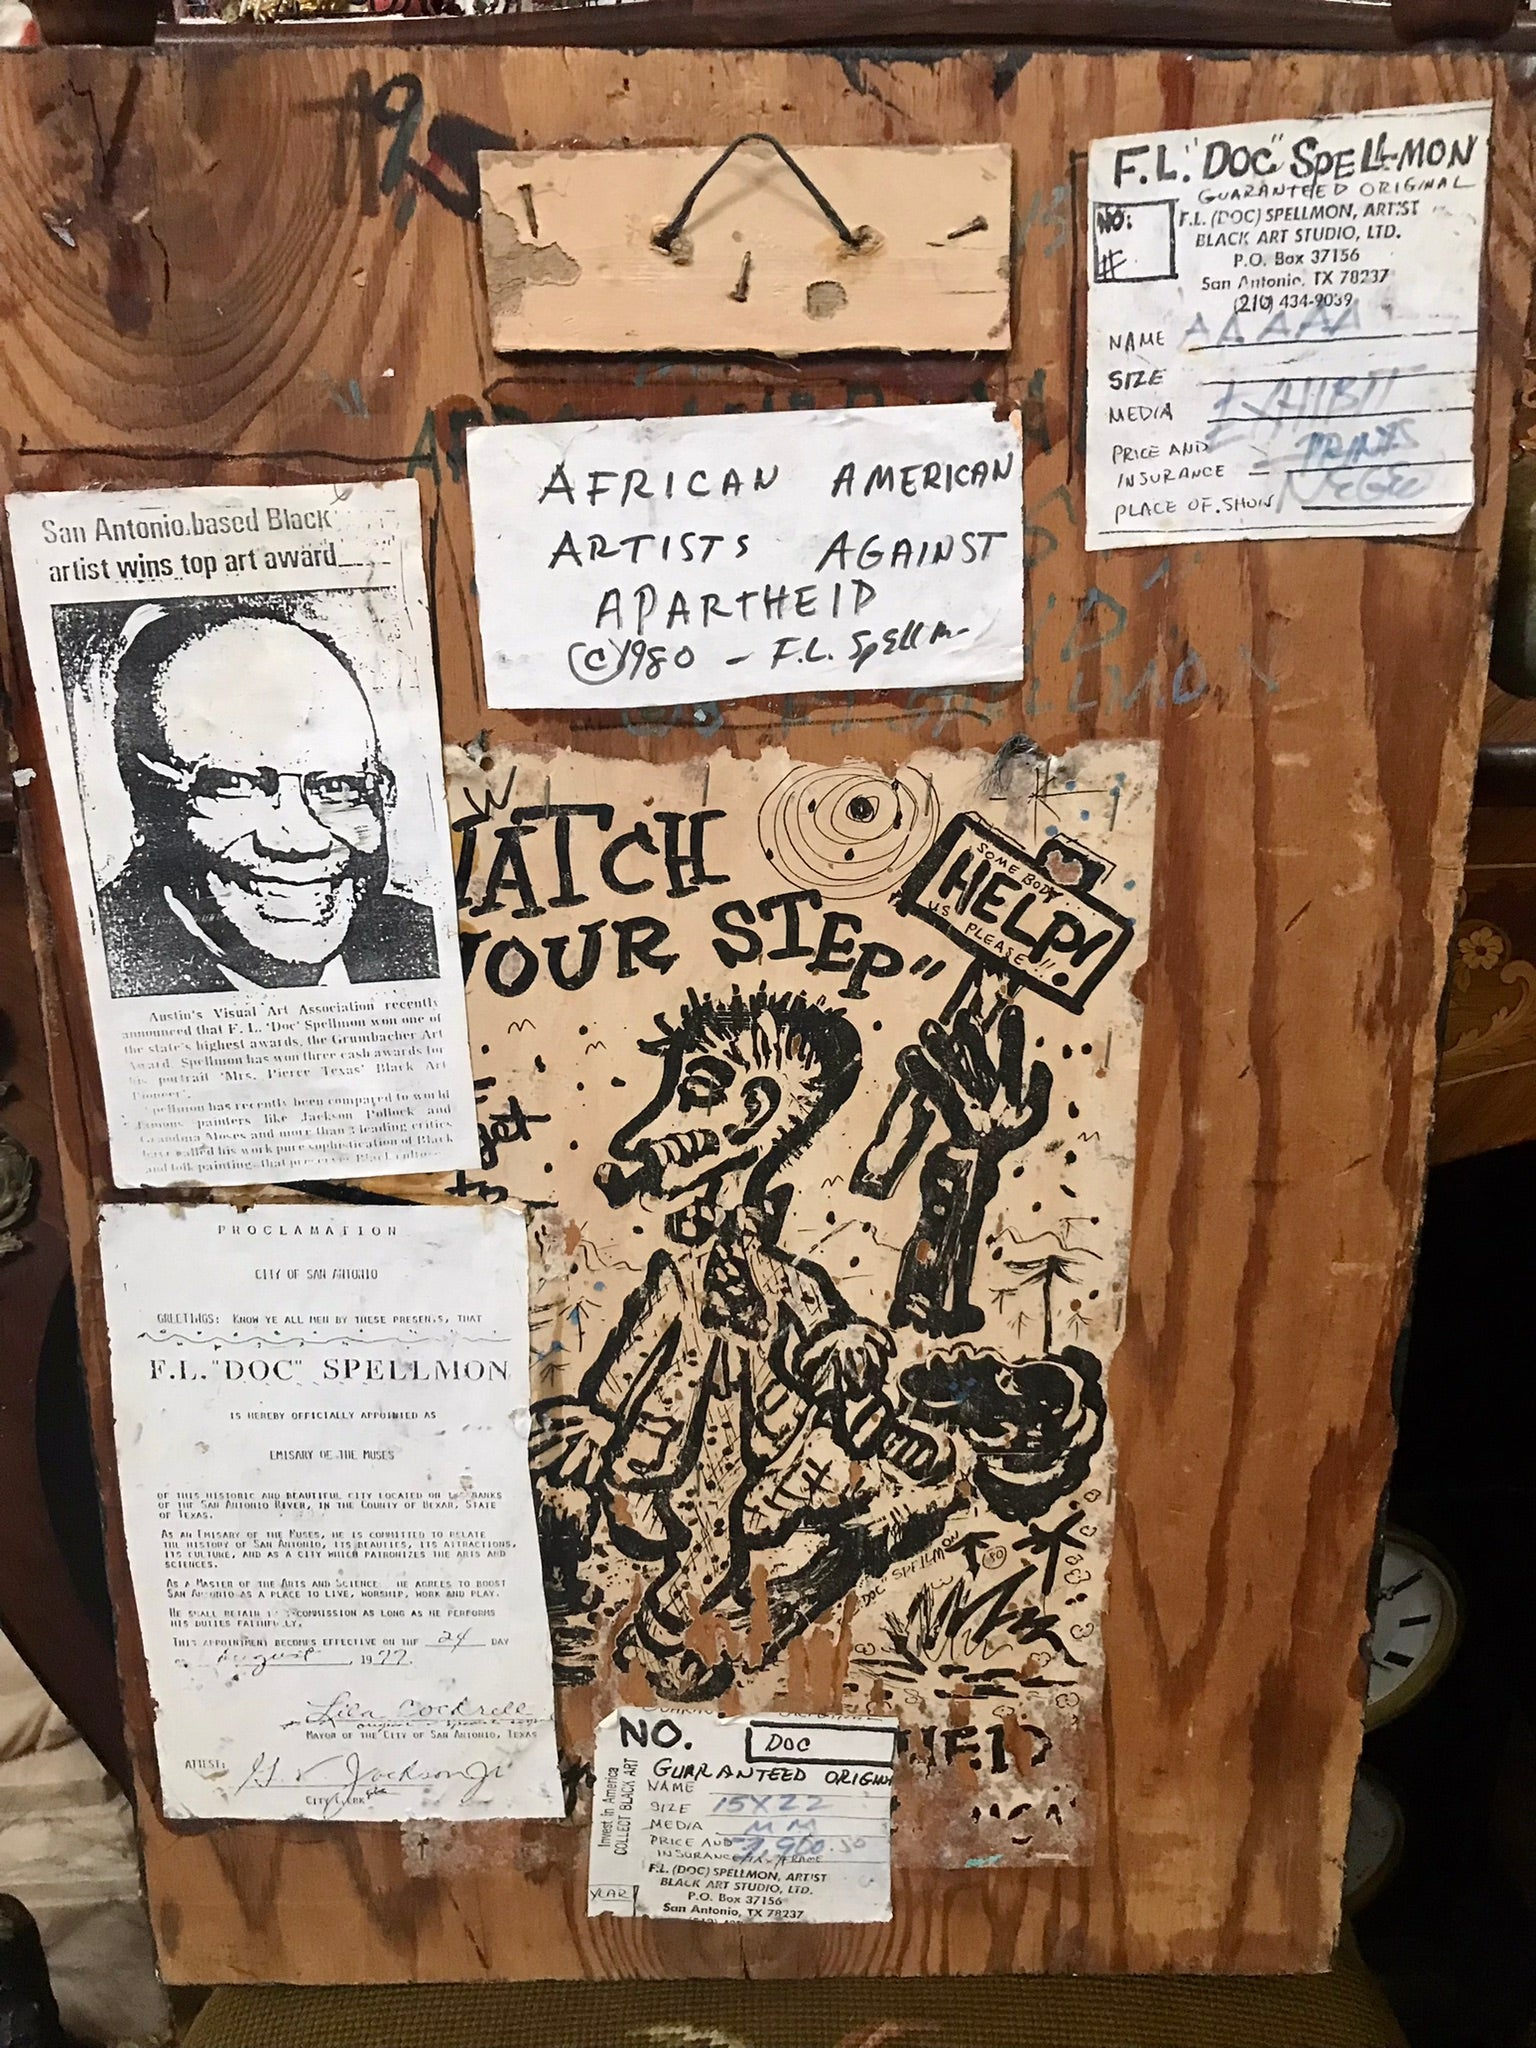 #9
F.L. "DOC" SPELLMON
GUARANTEED ORIGINAL
NO:
#
F.L. (DOC) SPELLMON, ARTIST
BLACK ART STUDIO, LTD.
P.O. Box 37156
San Antonio, TX 78237
(210) 434-9039
NAME AAAAA
SIZE
MEDIA EXHIBIT
PRICE AND
INSURANCE
PLACE OF SHOW
AFRICAN AMERICAN
ARTISTS AGAINST
APARTHEID
©1980 - F.L. Spellm
SPELLMON
San Antonio based Black
artist wins top art award
Austin's Visual Art Association recently
announced that F. L. 'Doc' Spellmon won one of
the state's highest awards, the Grumbacher Art
Award. Spellmon has won three cash awards for
his portrait 'Mrs. Pierce Texas' Black Art
Pioneer'.
Spellmon has recently been compared to world
famous painters like Jackson Pollock and
Grandma Moses and more than 3 leading critics
have called his work pure sophistication of Black
and folk painting that preserves Black culture
WATCH
YOUR STEP"
SOME BODY
HELP!
US PLEASE!!
get
"DOC" SPELLMON
80
PROCLAMATION
CITY OF SAN ANTONIO
GREETINGS: KNOW YE ALL MEN BY THESE PRESENTS, THAT
F.L. "DOC" SPELLMON
IS HEREBY OFFICIALLY APPOINTED AS
EMISARY OF THE MUSES
OF THIS HISTORIC AND BEAUTIFUL CITY LOCATED ON THE BANKS
OF THE SAN ANTONIO RIVER, IN THE COUNTY OF BEXAR, STATE
OF TEXAS.
AS AN EMISARY OF THE MUSES, HE IS COMMITTED TO RELATE
THE HISTORY OF SAN ANTONIO, ITS BEAUTIES, ITS ATTRACTIONS,
ITS CULTURE, AND AS A CITY WHICH PATRONIZES THE ARTS AND
SCIENCES.
AS A MASTER OF THE ARTS AND SCIENCE HE AGREES TO BOOST
SAN ANTONIO AS A PLACE TO LIVE, WORSHIP, WORK AND PLAY.
HE SHALL RETAIN COMMISSION AS LONG AS HE PERFORMS
HIS DUTIES FAITHFULLY.
THIS APPOINTMENT BECOMES EFFECTIVE ON THE 24 DAY
OF August, 1977.
Lila Cockrell
MAYOR OF THE CITY OF SAN ANTONIO, TEXAS
ATTEST: G. V. Jackson Jr
CITY CLERK
NO. DOC
GUARANTEED ORIGIN
NAME
SIZE 15X22
MEDIA MM
PRICE AND
INSURANCE
Invest in America
COLLECT BLACK ART
F.L. (DOC) SPELLMON, ARTIST
BLACK ART STUDIO, LTD.
P.O. Box 37156
San Antonio, TX 78237
YEAR